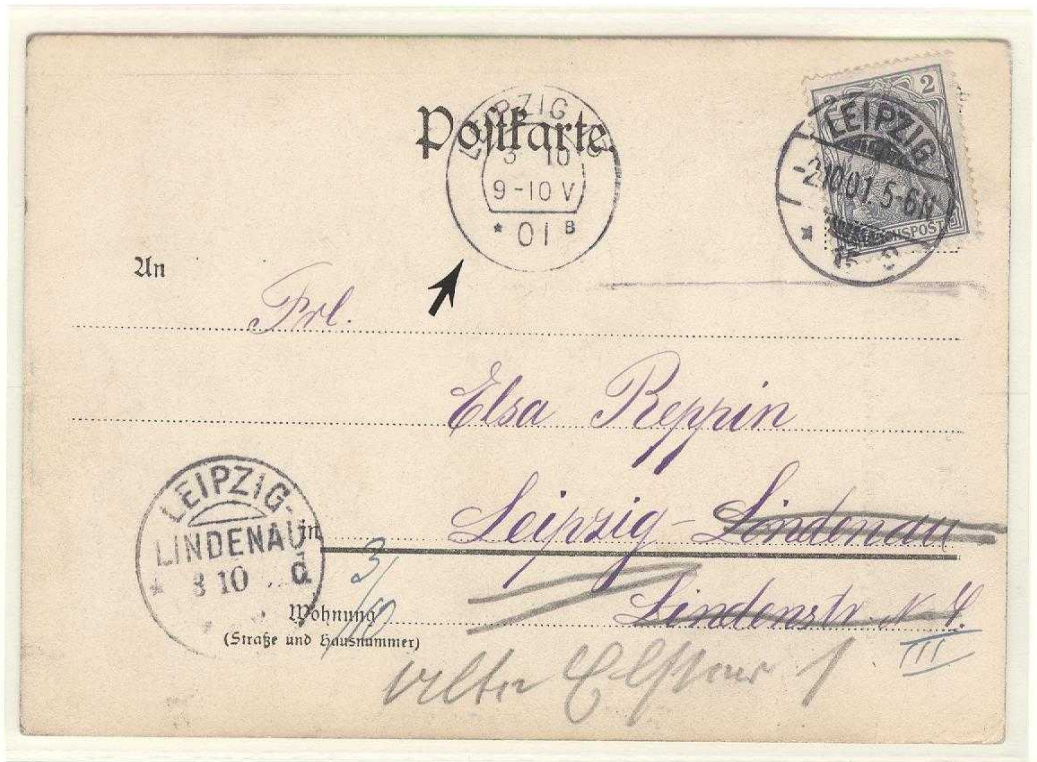 Postkarte.
LEIPZIG
3 10
9-10 V
* 01 B
2
LEIPZIG
-2.10.01. 5-6N
REICHSPOST
*
15
An
Frl.
Elsa Reppin
Leipzig-Lindenau
in
LEIPZIG-
LINDENAU
* 3 10 d
3/10
Wohnung
(Straße und Hausnummer)
Lindenstr. N
III
1